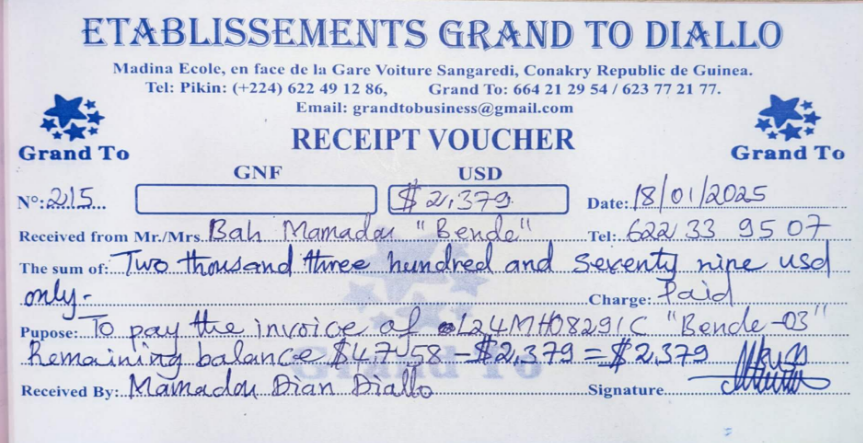 ETABLISSEMENTS GRAND TO DIALLO
Madina Ecole, en face de la Gare Voiture Sangaredi, Conakry Republic de Guinea.
Tel: Pikin: (+224) 622 49 12 86, Grand To: 664 21 29 54 / 623 77 21 77.
Email: grandtobusiness@gmail.com
Grand To RECEIPT VOUCHER Grand To
GNF USD
N°: 215 $2,379 Date: 18/01/2025
Received from Mr./Mrs Bah Mamadou "Bende" Tel: 622 33 95 07
The sum of: Two thousand three hundred and seventy nine usd
only- Charge: Paid
Pupose: To pay the invoice of L24MH08291C "Bende-03"
Remaining balance $4,758 - $2,379 = $2,379
Grand To
Received By: Mamadou Dian Diallo Signature